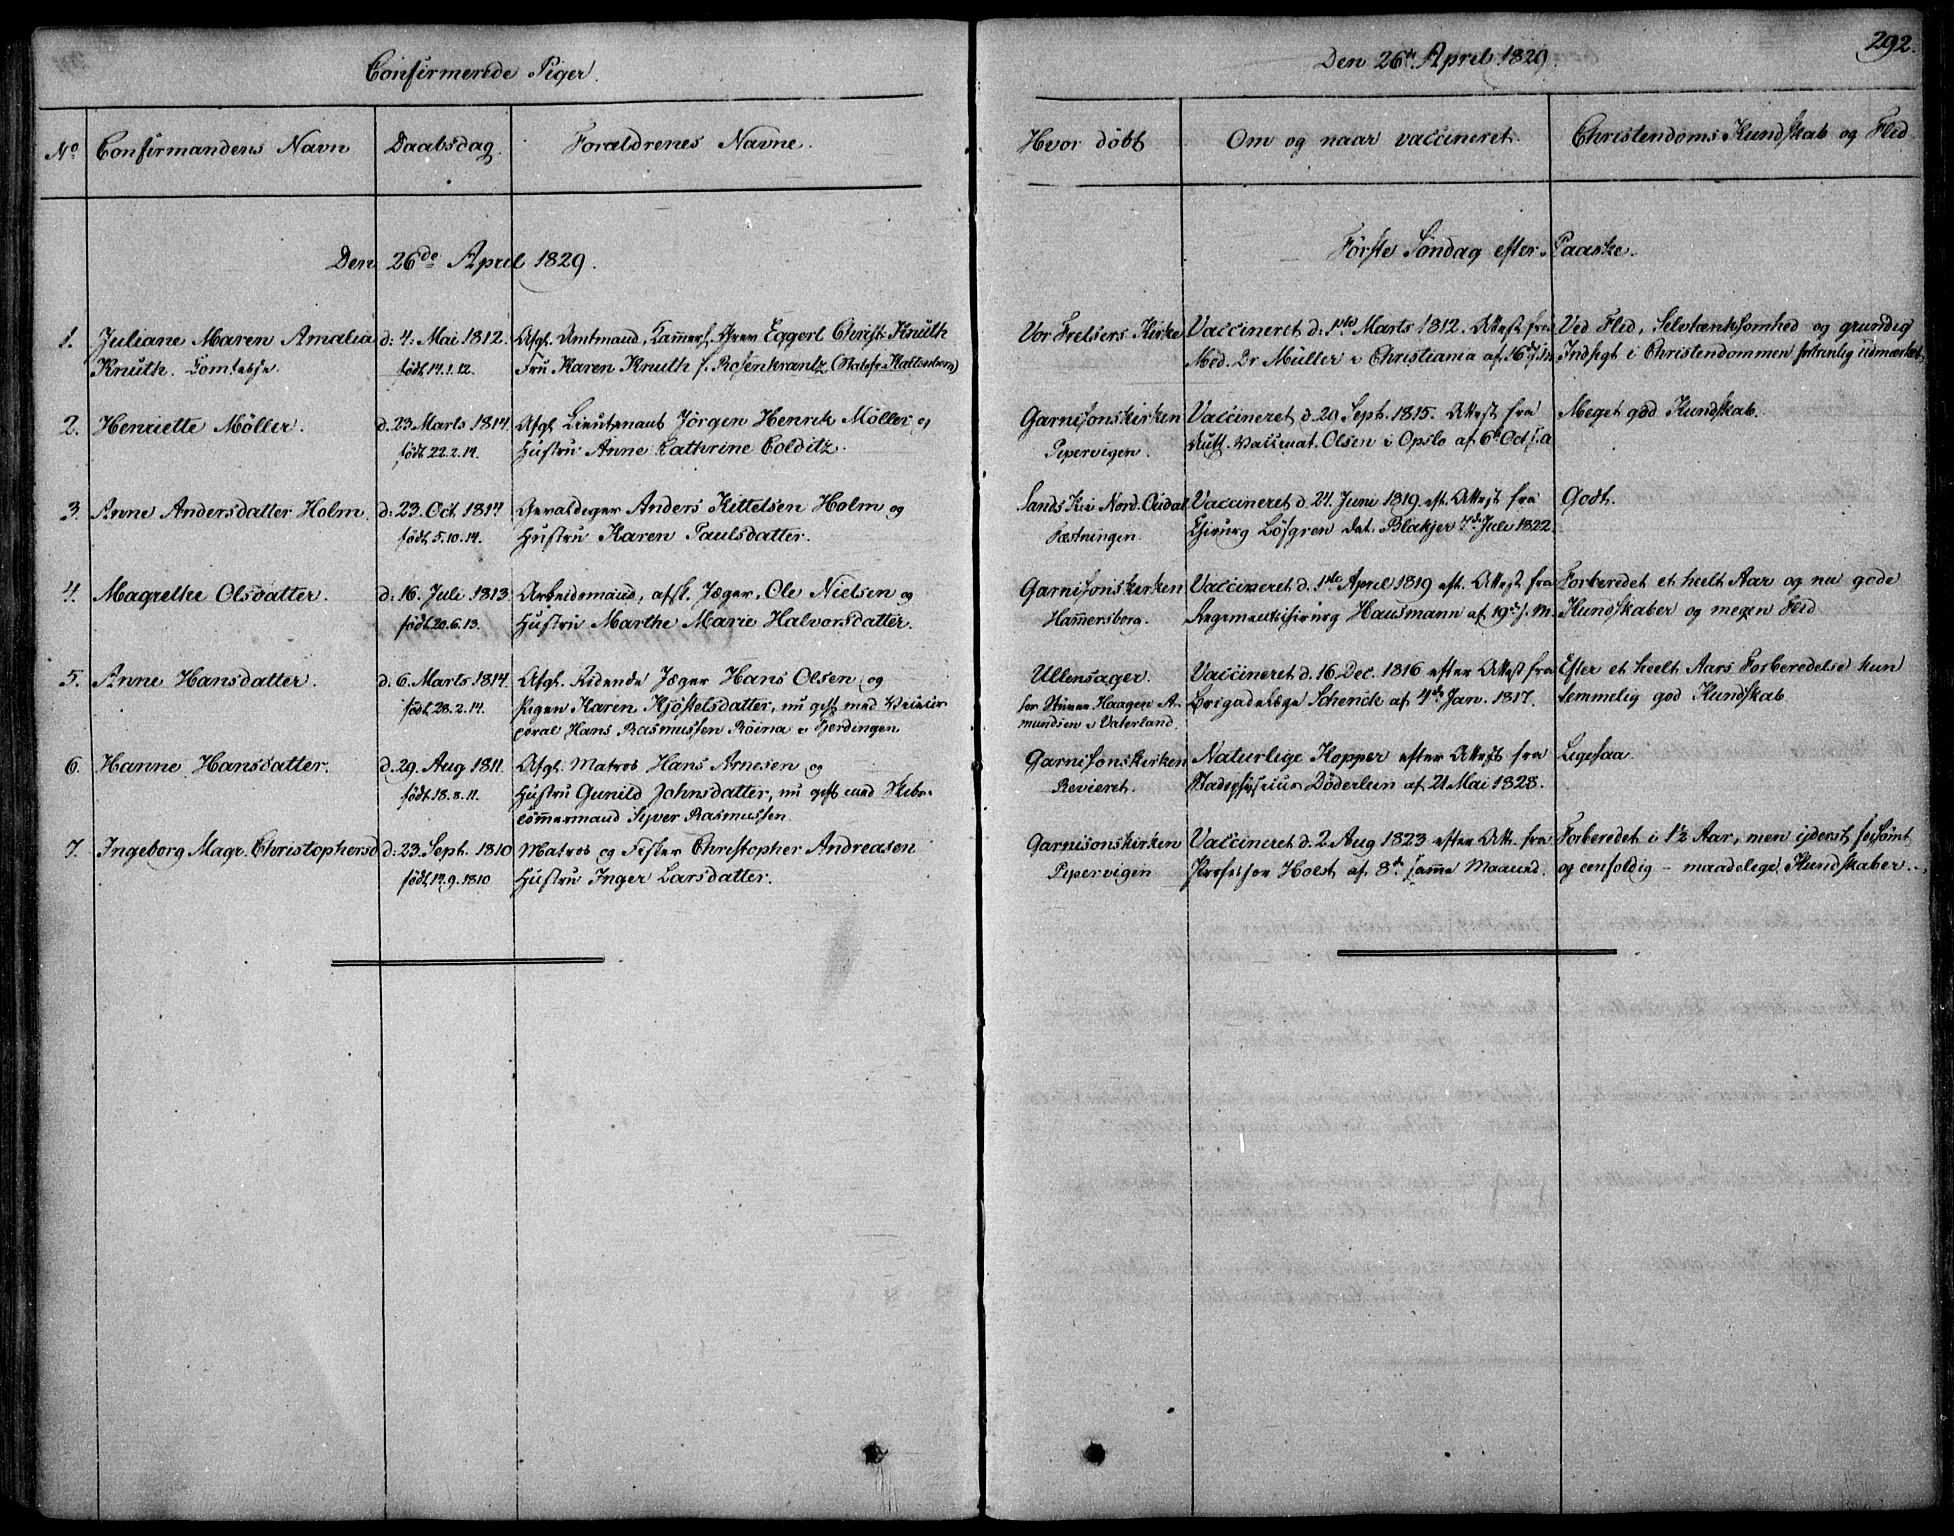 Confirmerede Piger.
Den 26de April 1829.
292.
No
Confirmandens Navn
Daabsdag.
Forældrenes Navne.
Hvor døbt
Om og naar vaccineret.
Christendoms Kundskab og Flid.
Den 26de April 1829.
Første Søndag efter Paaske.
1. Juliane Maren Amalia d: 4. Mai 1812. Afg. Amtmand, Kammerh. Grev Eggert Christ: Knuth Vor Frelsers Kirke Vaccineret d. 1ste Marts 1812. Attest fra Ved Flid, Selvtænksomhed og grundig
Knuth. Comtesse. født 14.1.12. Fru Karen Knuth f. Rosenkrantz Med. Dr Müller i Christiania af 16 Indsigt i Christendommen fortrinlig udmærket
2. Henriette Möller. d. 23 Marts 1814. Afg. Lieutenant Jörgen Henrik Möller og Garnisonskirken Vaccineret d. 20 Sept. 1815. Attest fra Meget god Kundskab.
født 22.2.14. Hustru Anne Cathrine Colditz. Pipervigen. Vaccinat. Olsen i Opslo af 6t Oct. s. a
3. Anne Andersdatter Holm. d: 23. Oct. 1814 Gevaldiger Anders Kittelsen Holm og Sands K. i Nord. Oudal Vaccineret d. 24. Juni 1819 eft. Attest fra Godt.
født 5.10.14. Hustru Karen Paulsdatter. Fæstningen. Chirurg Löfgren dat. Blakjer 7de Juli 1822.
4. Magrethe Olsdatter. d: 16. Juli 1813 Arbeidsmand, afsk. Jæger, Ole Nielsen og Garnisonskirken Vaccineret d. 1ste April 1819 eft. Attest fra Forberedet et heelt Aar og nu gode
født 20.6.13. Hustru Marthe Marie Halvorsdatter. Hammersborg. Regimentschirurg Hausmann af 19d s. M. Kundskaber og megen Flid
5. Anne Hansdatter. d. 6. Marts 1814. Afg. Ridende Jæger Hans Olsen og Ullensager. Vaccineret d. 16 Dec. 1816 efter Attest fra Efter et heelt Aars Forberedelse kun
født 28.2.14. Pigen Karen Kjöstelsdatter, nu gift med for Haagen A- Brigadelæge Schenck af 4de Jan. 1817. temmelig god Kundskab
poral Hans Rasmussen i Fjerdingen mundsen i Vaterland.
6. Hanne Hansdatter. d. 29. Aug 1811. Afg. Matros Hans Arnesen og Garnisonskirken Naturlige Kopper efter Attest fra Ligesaa
født 18.8.11. Hustru Gunild Johnsdatter, nu gift med Skibs- Revieret. Stadsphysicus Döderlein af 21 Mai 1828.
tömmermand Syver Rasmussen.
7. Ingeborg Magr. Christophersd. d. 23. Sept. 1810 Matros og Fisker Christopher Andreasen Garnisonskirken Vaccineret d. 2. Aug 1823 efter Att. fra Forberedet i 1½ Aar, men yderst forsømt
født 14.9.1810 Hustru Inger Larsdatter. Pipervigen Professor Holst af 8de samme Maaned. og eenfoldig - maadelige Kundskaber.